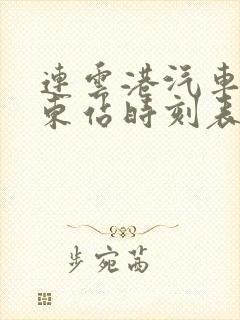 連雲港汽車
東站時刻表
步宛茜